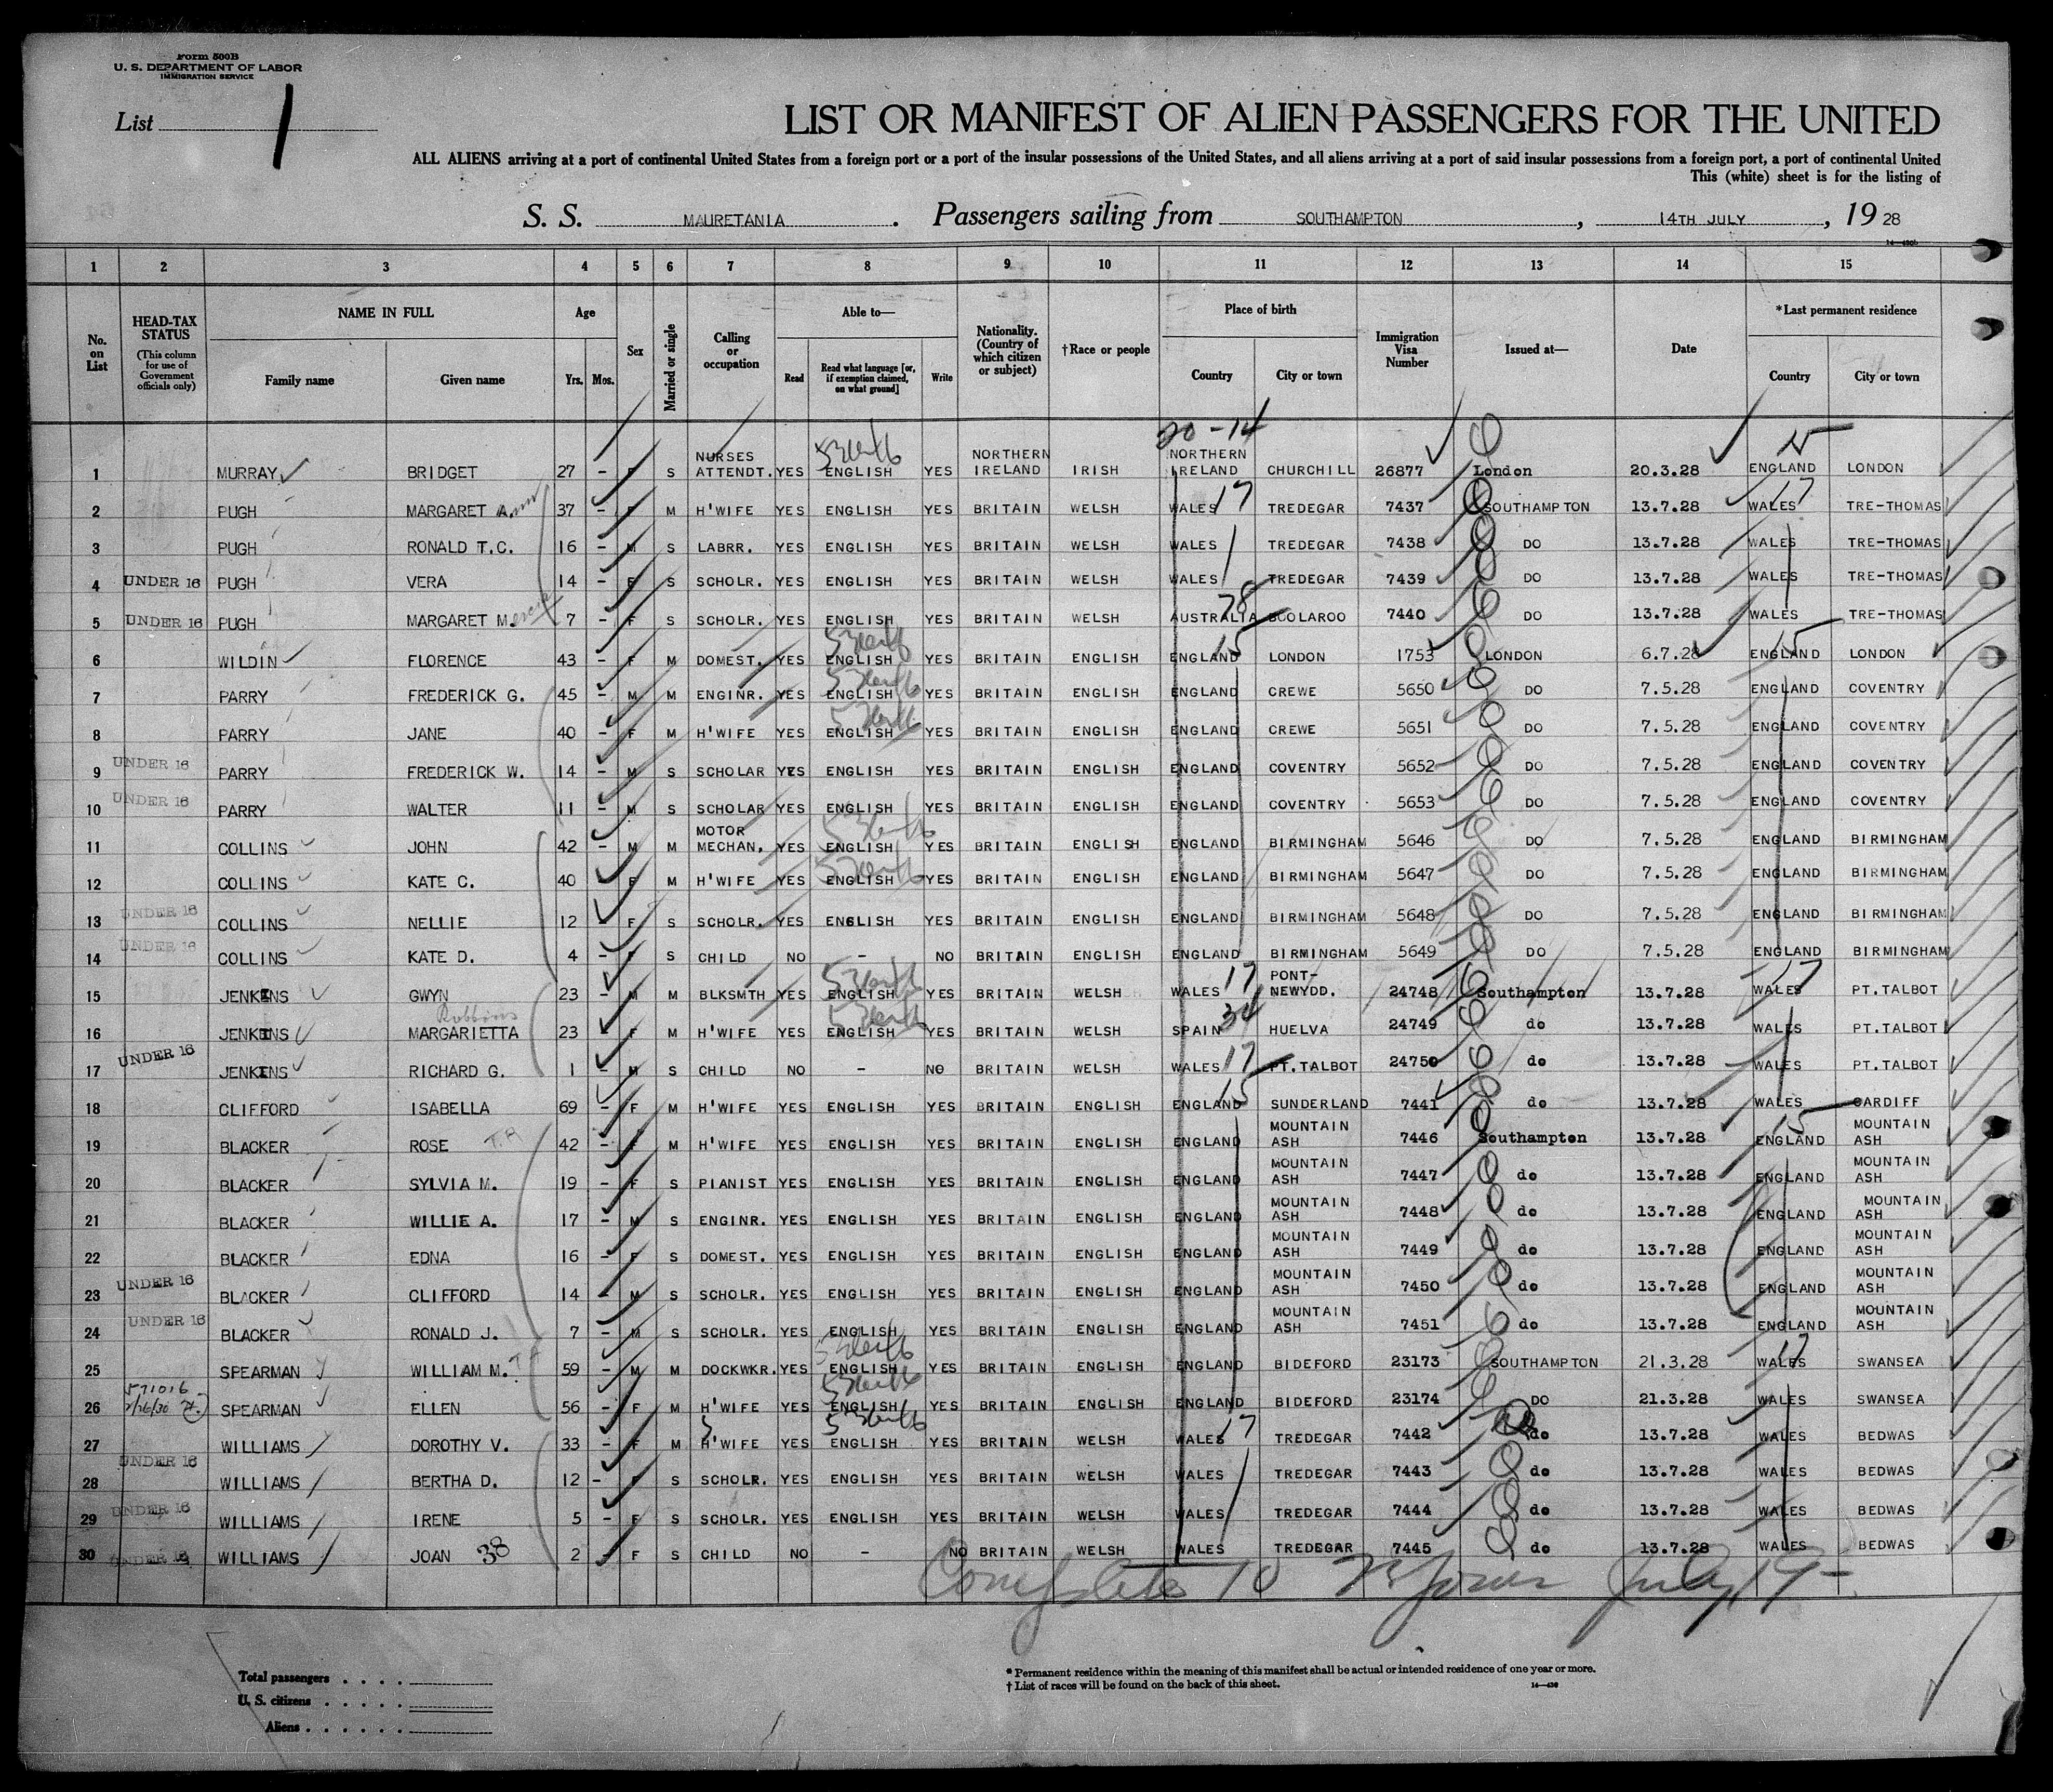 Form 500B
U. S. DEPARTMENT OF LABOR
IMMIGRATION SERVICE
List 1
LIST OR MANIFEST OF ALIEN PASSENGERS FOR THE UNITED
ALL ALIENS arriving at a port of continental United States from a foreign port or a port of the insular possessions of the United States, and all aliens arriving at a port of said insular possessions from a foreign port, a port of continental United
This (white) sheet is for the listing of
S. S. MAURETANIA. Passengers sailing from SOUTHAMPTON, 14TH JULY, 19 28
1 2 3 4 5 6 7 8 9 10 11 12 13 14 15
No. on List HEAD-TAX STATUS (This column for use of Government officials only) NAME IN FULL Family name Given name Age Yrs. Mos. Sex Married or single Calling or occupation Able to— Read Read what language [or, if exemption claimed, on what ground] Write Nationality. (Country of which citizen or subject) †Race or people Place of birth Country City or town Immigration Visa Number Issued at— Date *Last permanent residence Country City or town
20-14 15
1 MURRAY BRIDGET 27 – F S NURSES ATTENDT. YES ENGLISH YES NORTHERN IRELAND IRISH NORTHERN IRELAND CHURCHILL 26877 London 20.3.28 ENGLAND LONDON
2 PUGH MARGARET A. 37 – F M H'WIFE YES ENGLISH YES BRITAIN WELSH WALES 17 TREDEGAR 7437 SOUTHAMPTON 13.7.28 WALES 17 TRE-THOMAS
3 PUGH RONALD T.C. 16 – M S LABRR. YES ENGLISH YES BRITAIN WELSH WALES TREDEGAR 7438 DO 13.7.28 WALES TRE-THOMAS
4 UNDER 16 PUGH VERA 14 – F S SCHOLR. YES ENGLISH YES BRITAIN WELSH WALES TREDEGAR 7439 DO 13.7.28 WALES TRE-THOMAS
5 UNDER 16 PUGH MARGARET M. 7 – F S SCHOLR. YES ENGLISH YES BRITAIN WELSH AUSTRALIA 78 BOOLAROO 7440 DO 13.7.28 WALES TRE-THOMAS
6 WILDIN FLORENCE 43 – F M DOMEST. YES ENGLISH YES BRITAIN ENGLISH ENGLAND 15 LONDON 1753 LONDON 6.7.28 ENGLAND 15 LONDON
7 PARRY FREDERICK G. 45 – M M ENGINR. YES ENGLISH YES BRITAIN ENGLISH ENGLAND CREWE 5650 DO 7.5.28 ENGLAND COVENTRY
8 PARRY JANE 40 – F M H'WIFE YES ENGLISH YES BRITAIN ENGLISH ENGLAND CREWE 5651 DO 7.5.28 ENGLAND COVENTRY
9 UNDER 16 PARRY FREDERICK W. 14 – M S SCHOLAR YES ENGLISH YES BRITAIN ENGLISH ENGLAND COVENTRY 5652 DO 7.5.28 ENGLAND COVENTRY
10 UNDER 16 PARRY WALTER 11 – M S SCHOLAR YES ENGLISH YES BRITAIN ENGLISH ENGLAND COVENTRY 5653 DO 7.5.28 ENGLAND COVENTRY
11 COLLINS JOHN 42 – M M MOTOR MECHAN. YES ENGLISH YES BRITAIN ENGLISH ENGLAND BIRMINGHAM 5646 DO 7.5.28 ENGLAND BIRMINGHAM
12 COLLINS KATE C. 40 – F M H'WIFE YES ENGLISH YES BRITAIN ENGLISH ENGLAND BIRMINGHAM 5647 DO 7.5.28 ENGLAND BIRMINGHAM
13 UNDER 16 COLLINS NELLIE 12 – F S SCHOLR. YES ENGLISH YES BRITAIN ENGLISH ENGLAND BIRMINGHAM 5648 DO 7.5.28 ENGLAND BIRMINGHAM
14 UNDER 16 COLLINS KATE D. 4 – F S CHILD NO – NO BRITAIN ENGLISH ENGLAND BIRMINGHAM 5649 DO 7.5.28 ENGLAND BIRMINGHAM
15 JENKINS GWYN 23 – M M BLKSMTH YES ENGLISH YES BRITAIN WELSH WALES 17 PONT-NEWYDD. 24748 Southampton 13.7.28 WALES 17 PT.TALBOT
Robbins
16 JENKINS MARGARIETTA 23 – F M H'WIFE YES ENGLISH YES BRITAIN WELSH SPAIN 34 HUELVA 24749 do 13.7.28 WALES PT.TALBOT
17 UNDER 16 JENKINS RICHARD G. 1 – M S CHILD NO – NO BRITAIN WELSH WALES 17 PT.TALBOT 24750 do 13.7.28 WALES PT.TALBOT
18 CLIFFORD ISABELLA 69 – F M H'WIFE YES ENGLISH YES BRITAIN ENGLISH ENGLAND 15 SUNDERLAND 7441 do 13.7.28 WALES CARDIFF
19 BLACKER ROSE T.R 42 – F M H'WIFE YES ENGLISH YES BRITAIN ENGLISH ENGLAND MOUNTAIN ASH 7446 Southampton 13.7.28 ENGLAND 15 MOUNTAIN ASH
20 BLACKER SYLVIA M. 19 – F S PIANIST YES ENGLISH YES BRITAIN ENGLISH ENGLAND MOUNTAIN ASH 7447 do 13.7.28 ENGLAND MOUNTAIN ASH
21 BLACKER WILLIE A. 17 – M S ENGINR. YES ENGLISH YES BRITAIN ENGLISH ENGLAND MOUNTAIN ASH 7448 do 13.7.28 ENGLAND MOUNTAIN ASH
22 BLACKER EDNA 16 – F S DOMEST. YES ENGLISH YES BRITAIN ENGLISH ENGLAND MOUNTAIN ASH 7449 do 13.7.28 ENGLAND MOUNTAIN ASH
23 UNDER 16 BLACKER CLIFFORD 14 – M S SCHOLR. YES ENGLISH YES BRITAIN ENGLISH ENGLAND MOUNTAIN ASH 7450 do 13.7.28 ENGLAND MOUNTAIN ASH
24 UNDER 16 BLACKER RONALD J. 7 – M S SCHOLR. YES ENGLISH YES BRITAIN ENGLISH ENGLAND MOUNTAIN ASH 7451 do 13.7.28 ENGLAND MOUNTAIN ASH
25 SPEARMAN WILLIAM M. 59 – M M DOCKWKR. YES ENGLISH YES BRITAIN ENGLISH ENGLAND BIDEFORD 23173 SOUTHAMPTON 21.3.28 WALES 17 SWANSEA
26 571016 SPEARMAN ELLEN 56 – F M H'WIFE YES ENGLISH YES BRITAIN ENGLISH ENGLAND BIDEFORD 23174 DO 21.3.28 WALES SWANSEA
27 WILLIAMS DOROTHY V. 33 – F M H'WIFE YES ENGLISH YES BRITAIN WELSH WALES 17 TREDEGAR 7442 do 13.7.28 WALES BEDWAS
28 UNDER 16 WILLIAMS BERTHA D. 12 – F S SCHOLR. YES ENGLISH YES BRITAIN WELSH WALES TREDEGAR 7443 do 13.7.28 WALES BEDWAS
29 UNDER 16 WILLIAMS IRENE 5 – F S SCHOLR. YES ENGLISH YES BRITAIN WELSH WALES TREDEGAR 7444 do 13.7.28 WALES BEDWAS
30 UNDER 16 WILLIAMS JOAN 38 2 – F S CHILD NO – NO BRITAIN WELSH WALES TREDEGAR 7445 do 13.7.28 WALES BEDWAS
Complete 10 July 19
Total passengers . . . .
U. S. citizens . . . . .
Aliens . . . . . .
* Permanent residence within the meaning of this manifest shall be actual or intended residence of one year or more.
† List of races will be found on the back of this sheet.